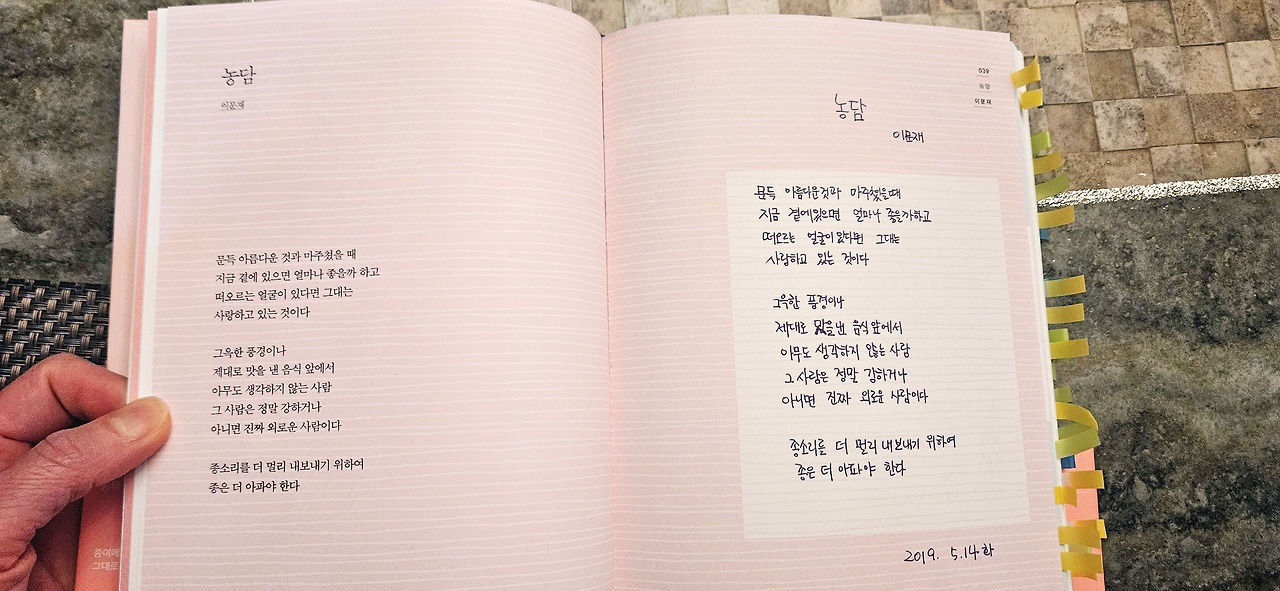 농담
이문재
문득 아름다운 것과 마주쳤을 때
지금 곁에 있으면 얼마나 좋을까 하고
떠오르는 얼굴이 있다면 그대는
사랑하고 있는 것이다
그윽한 풍경이나
제대로 맛을 낸 음식 앞에서
아무도 생각하지 않는 사람
그 사람은 정말 강하거나
아니면 진짜 외로운 사람이다
종소리를 더 멀리 내보내기 위하여
종은 더 아파야 한다
종이에
그대로
039
농담
이문재
농담
이문재
문득 아름다운것과 마주쳤을때
지금 곁에있으면 얼마나 좋을까하고
떠오르는 얼굴이 있다면 그대는
사랑하고 있는 것이다
그윽한 풍경이나
제대로 맛을낸 음식앞에서
아무도 생각하지 않는 사람
그 사람은 정말 강하거나
아니면 진짜 외로운 사람이다
종소리를 더 멀리 내보내기 위하여
종은 더 아파야 한다
2019. 5.14 화